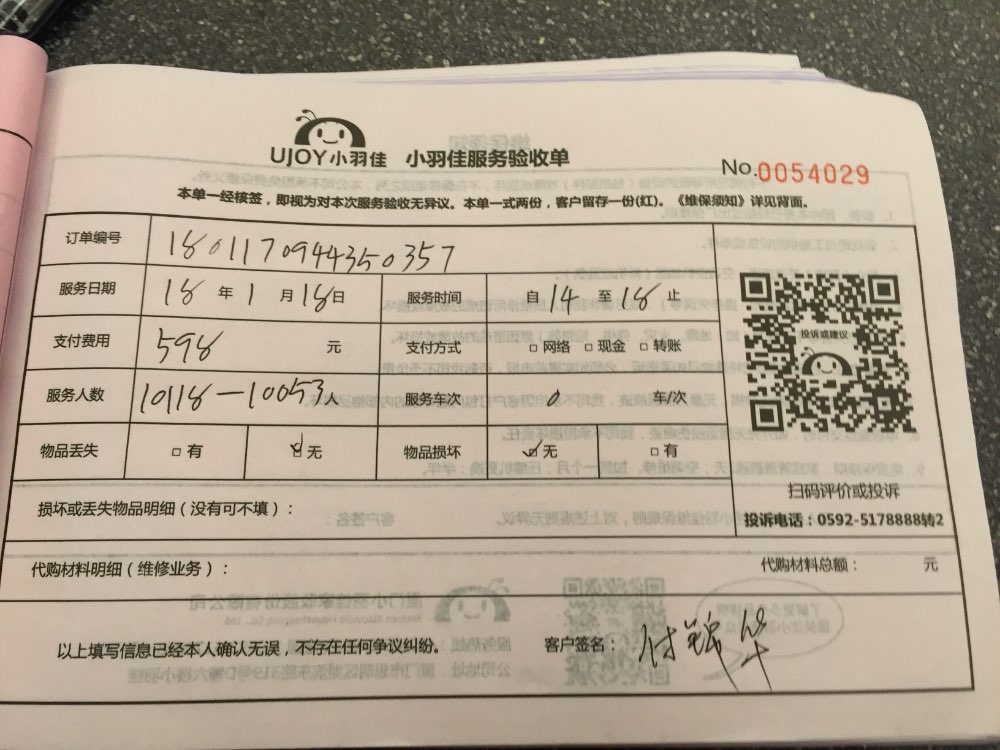 UJOY小羽佳 小羽佳服务验收单
No.0054029
本单一经核签，即视为对本次服务验收无异议。本单一式两份，客户留存一份(红)。《维保须知》详见背面。
订单编号 180117094435 0357
服务日期 18 年 1 月 18 日 服务时间 自 14 至 18 止
投诉或建议
支付费用 598 元 支付方式 □ 网络 □ 现金 □ 转账
服务人数 10118—10053 人 服务车次 0 车/次
物品丢失 □ 有 ☑ 无 物品损坏 ☑ 无 □ 有
扫码评价或投诉
损坏或丢失物品明细（没有可不填）：
投诉电话：0592-5178888转2
代购材料明细（维修业务）： 代购材料总额： 元
以上填写信息已经本人确认无误，不存在任何争议纠纷。 客户签名：